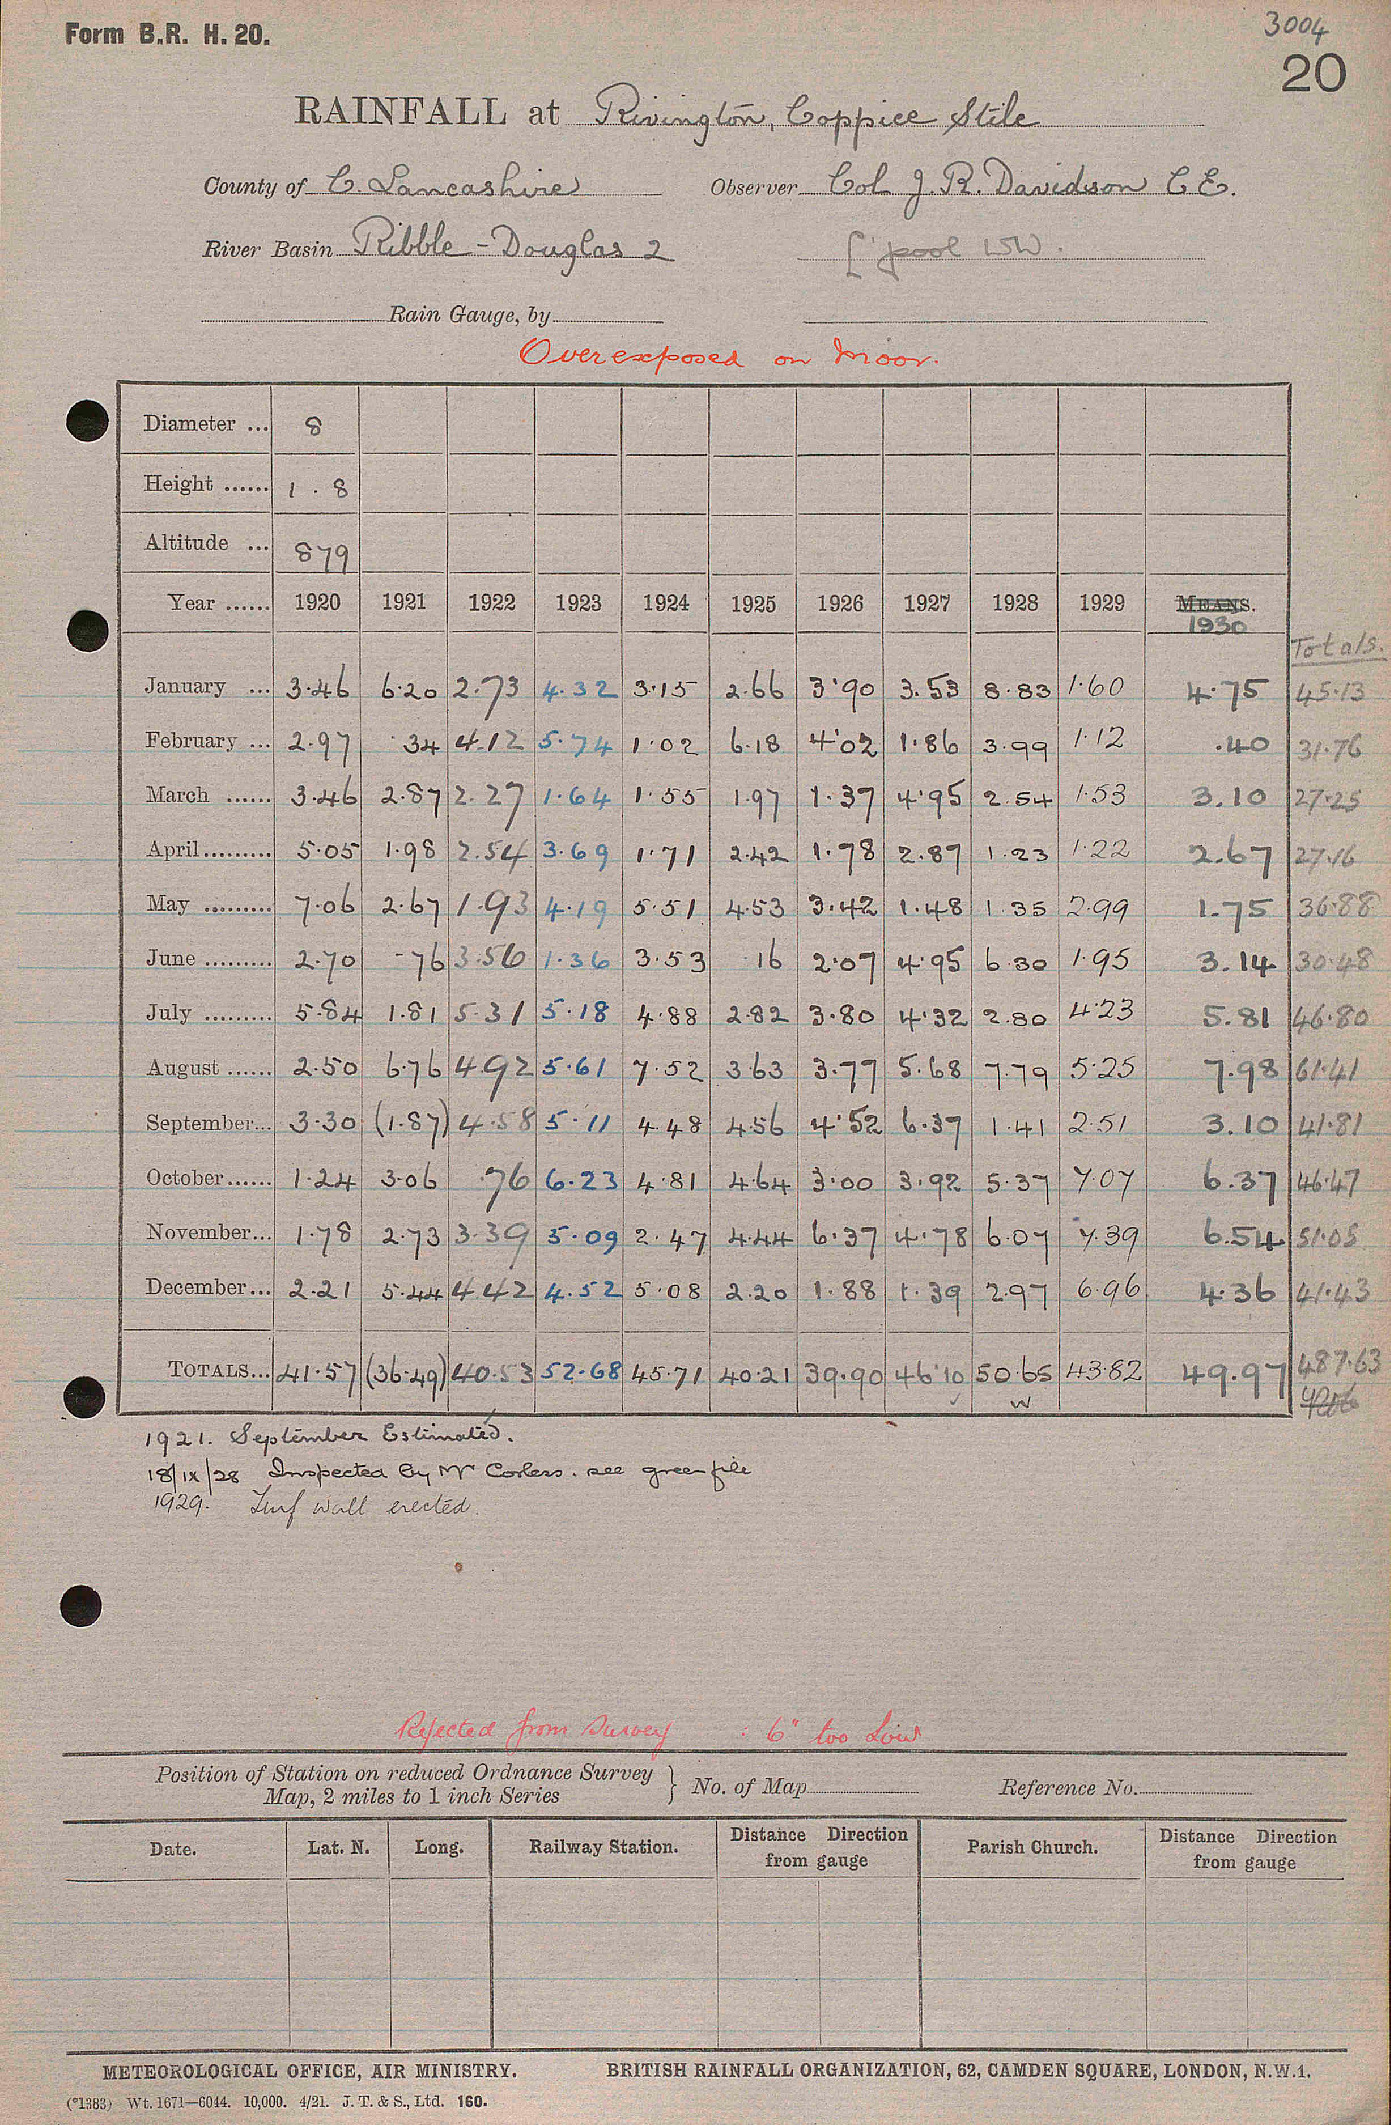 Form B.R. H. 20.
3004
20
RAINFALL at Rivington, Coppice Stile
County of C. Lancashire Observer Col J. R. Davidson C E.
River Basin Ribble - Douglas 2 L'pool WW.
Rain Gauge, by
Overexposed on Moor.
Diameter ... 8
Height ...... 1 . 8
Altitude ... 879
Year ...... 1920 1921 1922 1923 1924 1925 1926 1927 1928 1929 MEANS. 1930
Totals.
January ... 3.46 6.20 2.73 4.32 3.15 2.66 3.90 3.53 8.83 1.60 4.75 45.13
February ... 2.97 .34 4.12 5.74 1.02 6.18 4.02 1.86 3.99 1.12 .40 31.76
March ...... 3.46 2.87 2.27 1.64 1.55 1.97 1.37 4.95 2.54 1.53 3.10 27.25
April......... 5.05 1.98 2.54 3.69 1.71 2.42 1.78 2.87 1.23 1.22 2.67 27.16
May ......... 7.06 2.67 1.93 4.19 5.51 4.53 3.42 1.48 1.35 2.99 1.75 36.88
June ......... 2.70 .76 3.56 1.36 3.53 16 2.07 4.95 6.30 1.95 3.14 30.48
July ......... 5.84 1.81 5.31 5.18 4.88 2.82 3.80 4.32 2.80 4.23 5.81 46.80
August ...... 2.50 6.76 4.92 5.61 7.52 3.63 3.77 5.68 7.79 5.25 7.98 61.41
September... 3.30 (1.87) 4.58 5.11 4.48 4.56 4.52 6.37 1.41 2.51 3.10 41.81
October...... 1.24 3.06 .76 6.23 4.81 4.64 3.00 3.92 5.37 7.07 6.37 46.47
November... 1.78 2.73 3.39 5.09 2.47 4.44 6.37 4.78 6.07 7.39 6.54 51.05
December... 2.21 5.44 4.42 4.52 5.08 2.20 1.88 1.39 2.97 6.96 4.36 41.43
TOTALS... 41.57 (36.49) 40.53 52.68 45.71 40.21 39.90 46.10 50.65 43.82 49.97 487.63
1921. September Estimated.
18/IX/28 Inspected by Mr Corless. see green file
1929. Turf wall erected.
Rejected from Survey : 6" too Low
Position of Station on reduced Ordnance Survey
Map, 2 miles to 1 inch Series } No. of Map Reference No.
Date. Lat. N. Long. Railway Station. Distance Direction from gauge Parish Church. Distance Direction from gauge
METEOROLOGICAL OFFICE, AIR MINISTRY. BRITISH RAINFALL ORGANIZATION, 62, CAMDEN SQUARE, LONDON, N.W.1.
(*1383) Wt. 1671—6044. 10,000. 4/21. J. T. & S., Ltd. 160.